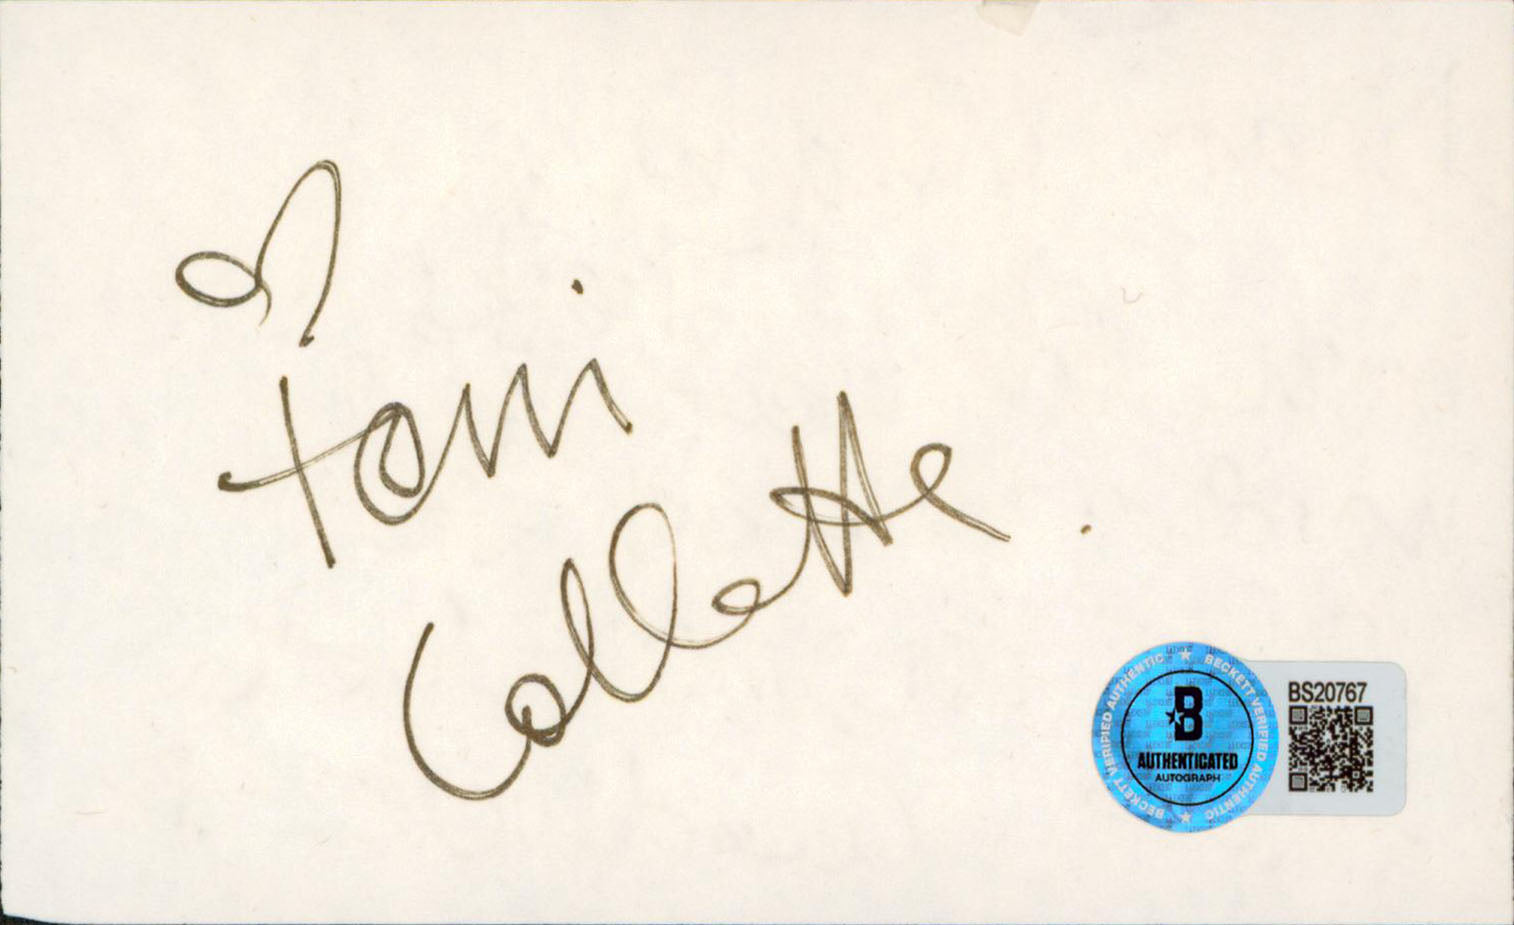 Toni
Collette.
BECKETT VERIFIED AUTHENTIC ★ BECKETT VERIFIED AUTHENTIC ★
B
AUTHENTICATED
AUTOGRAPH
BS20767